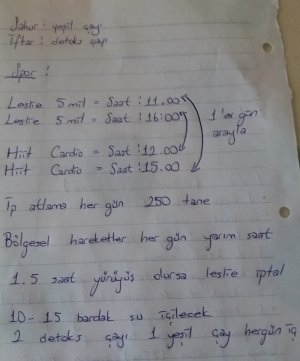 Sahur : yeşil çay
İftar : detoks çayı
Spor :
Leslie 5 mil = Saat : 11.00
Leslie 5 mil = Saat : 16:00
1'er gün
arayla
Hiit Cardio = Saat : 12.00
Hiit Cardio = Saat : 15.00
İp atlama her gün 250 tane
Bölgesel hareketler her gün yarım saat
1.5 saat yürüyüş olursa leslie iptal
10-15 bardak su içilecek
2 detoks çayı 1 yeşil çay hergün iç